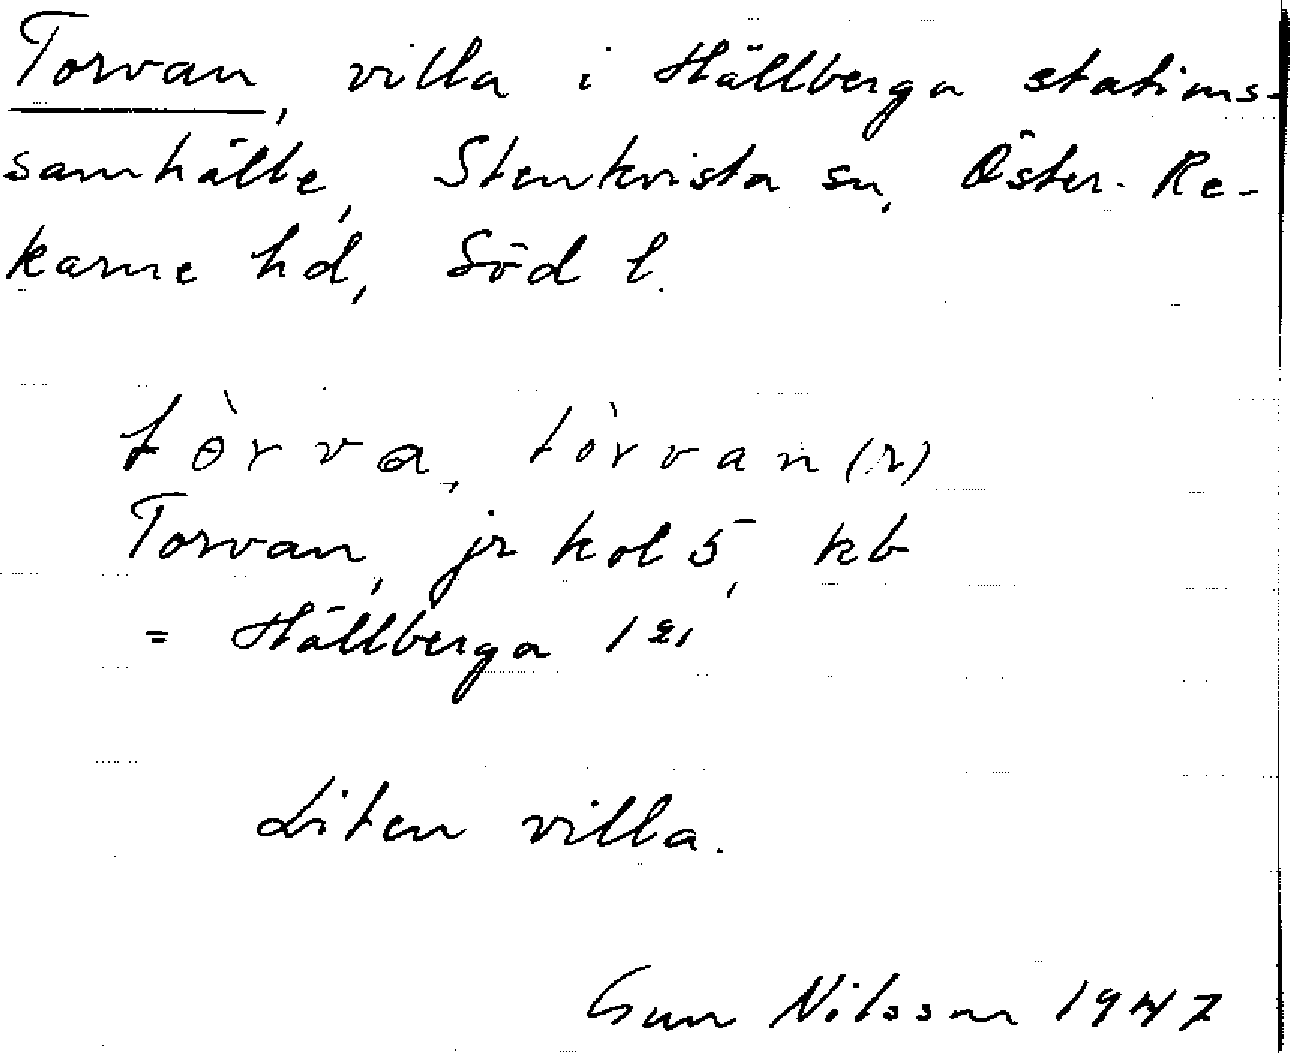 Torvan, villa i Hällberga stations-
samhälle, Stenkvista sn, Öster-Re-
karne hd, Söd l.
tòrva, tòrvan (r)
Torvan, jr kol 5, kb
= Hällberga 1²¹
Liten villa.
Gun Nilsson 1947